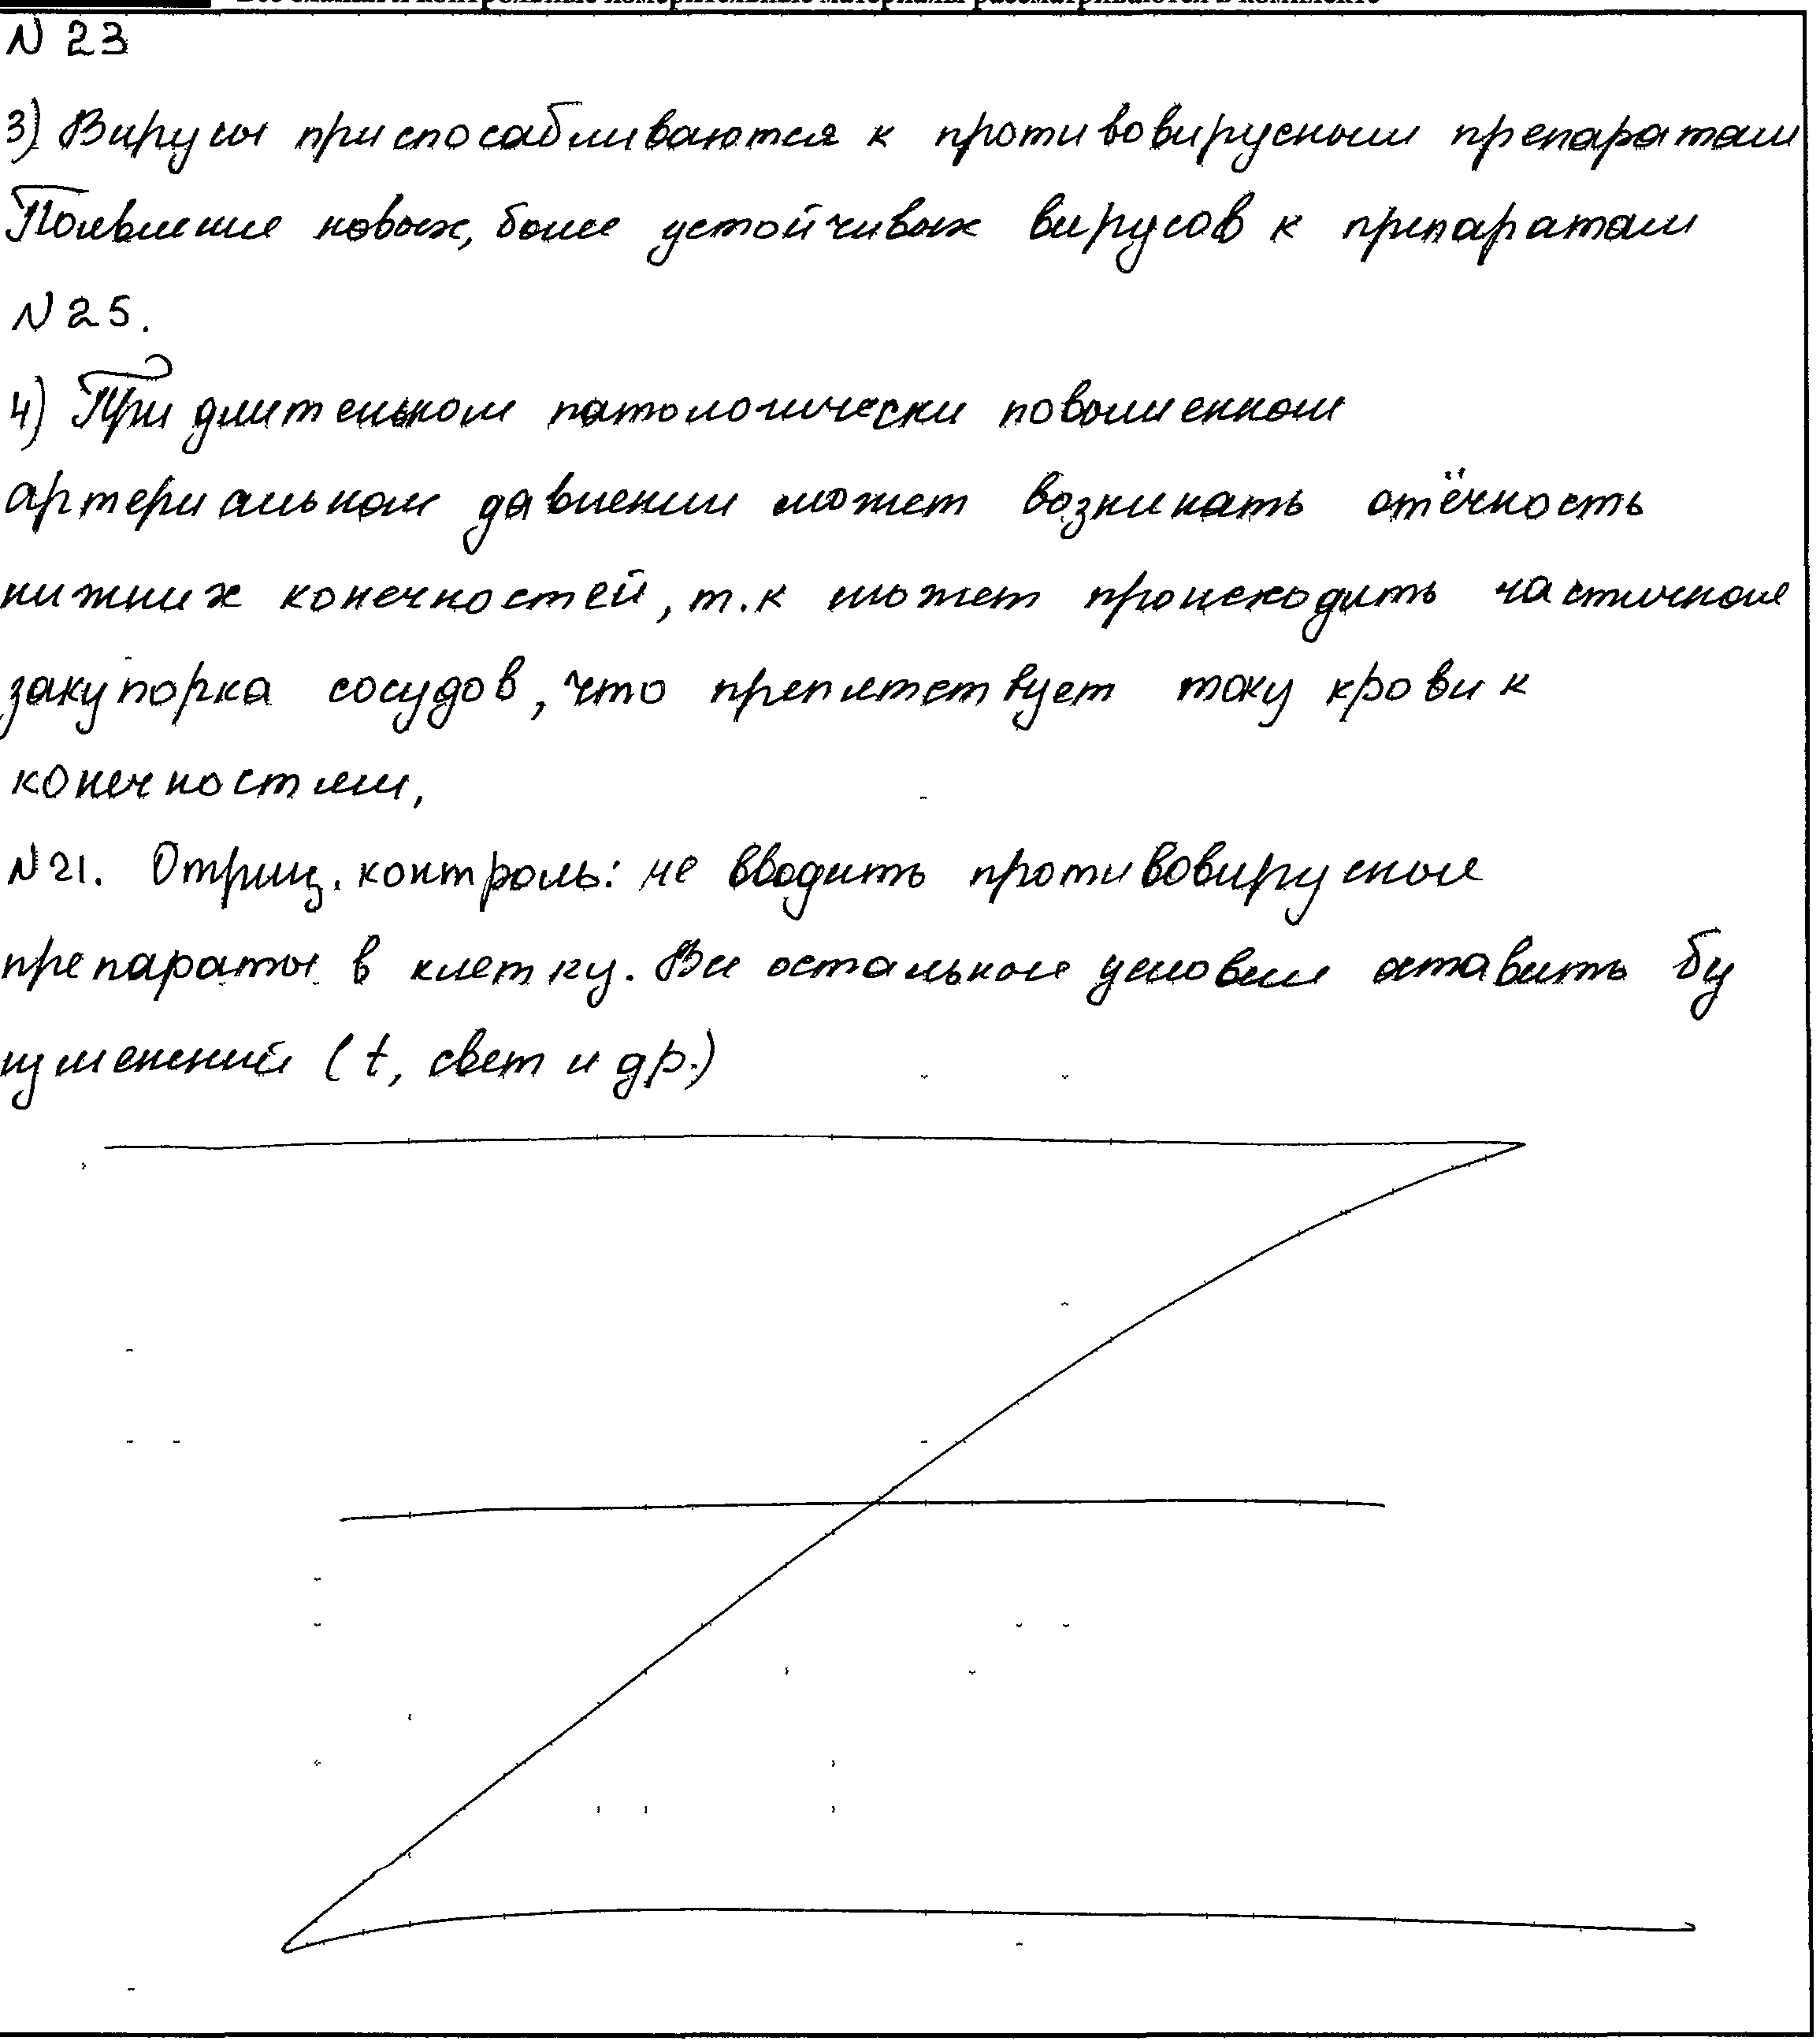 Все бланки и контрольные измерительные материалы рассматриваются в комплекте
N 23
3) Вирусы приспосабливаются к противовирусным препаратам
Появление новых, более устойчивых вирусов к препаратам
N 25.
4) При длительном патологически повышенном
артериальном давлении может возникать отёчность
нижних конечностей, т.к может происходить частичное
закупорка сосудов, что препятствует току крови к
конечностям,
N 21. Отриц. контроль: не вводить противовирусные
препараты в клетку. Все остальные условия оставить без
изменений (t, свет и др.)